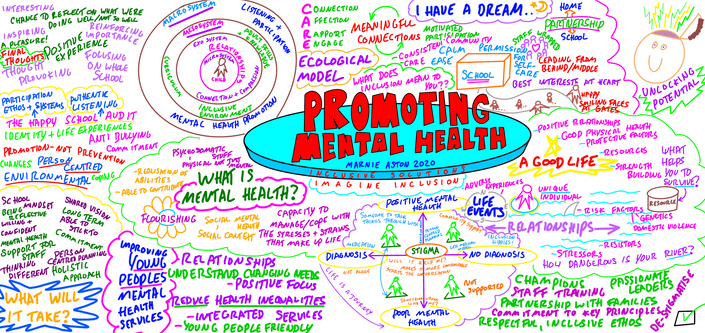 INTERESTING
CHANCE TO REFLECT ON WHAT WE'RE
DOING WELL/NOT SO WELL
INSPIRING
A PLEASURE!
REINFORCING
IMPORTANCE
FINAL
THOUGHTS
POSITIVE
EXPERIENCE
THOUGHT
PROVOKING
FOCUSING
ON WHOLE
SCHOOL
PARTICIPATION
ETHOS + SYSTEMS
AUTHENTIC
LISTENING
THE HAPPY SCHOOL AUDIT
IDENTITY + LIFE EXPERIENCES
ANTI BULLYING
COMMITMENT
PROMOTION-NOT PREVENTION
CHANGES
PERSON
CENTRED
ENVIRONMENTAL
SCHOOL
BEING MINDSET
REFLECTIVE
WILLING +
CONFIDENT
MENTAL HEALTH
SUPPORT TOOL
STAFF
THINKING
DIFFERENT
SHARED VISION
LONG TERM
ABLE TO
STICK TO
COMMITMENT
PERSON
CENTRED PLANNING
HOLISTIC
APPROACH
WHAT WILL
IT TAKE?
MACROSYSTEM
MESOSYSTEM
EXO SYSTEM
RELATIONSHIPS
MICROSYSTEM
CHILD
CONNECTION + COMPASSION
CURRICULUM
INCLUSIVE
ENVIRONMENT
LISTENING +
PARTICIPATION
MENTAL HEALTH PROMOTION
CONNECTION
AFFECTION
RAPPORT
ENGAGE
MEANINGFUL
CONNECTIONS
ECOLOGICAL
MODEL
WHAT DOES
INCLUSION MEAN TO
YOU??
I HAVE A DREAM..
MOTIVATED
PARTICIPATION
COMMUNITY
CONSISTENT
CARE
CALM
EASE
PERMISSION
FOR
SELF-
CARE
STAFF WRAPPED
SCHOOL
HOME
PARTNERSHIP
SCHOOL
LEADING FROM
BEHIND/MIDDLE
BEST INTERESTS AT HEART
HAPPY
SMILING FACES
AT GATES
UNLOCKING
POTENTIAL
PROMOTING
MENTAL HEALTH
MARNIE ASTON 2020
INCLUSIVE SOLUTIONS
IMAGINE INCLUSION
PSYCHODOMATIC
STUFF
PHYSICAL NOT JUST MENTAL
- REALISATION OF
ABILITIES
- ABLE TO CONTRIBUTE
WHAT IS
MENTAL HEALTH?
FLOURISHING
SOCIAL MENTAL
HEALTH
SOCIAL CONTEXT
CAPACITY TO
MANAGE/COPE WITH
THE STRESSES & STRAINS
THAT MAKE UP LIFE
IMPROVING
YOUNG
PEOPLES
MENTAL
HEALTH
SERVICES
- RELATIONSHIPS
UNDERSTAND CHANGING NEEDS
- POSITIVE FOCUS
REDUCE HEALTH INEQUALITIES
- INTEGRATED SERVICES
- YOUNG PEOPLE FRIENDLY
POSITIVE MENTAL
HEALTH
SOMEONE TO TALK
THINGS THROUGH WITH
MEDICATION
DIAGNOSIS
STIGMA
NO DIAGNOSIS
NOT
SUPPORTED
POOR MENTAL
HEALTH
LIFE IS A JOURNEY
ADVERSE
EXPERIENCES
LIFE
EVENTS
- POSITIVE RELATIONSHIPS
- GOOD PHYSICAL HEALTH
- PROTECTIVE FACTORS
A GOOD LIFE
- RESOURCES
- STRENGTH
BUILDING
WHAT
HELPS
YOU TO
SURVIVE?
UNIQUE
INDIVIDUAL
RESOURCE
- RISK FACTORS
GENETICS
DOMESTIC VIOLENCE
RELATIONSHIPS
- RESISTORS
STRESSORS
HOW DANGEROUS IS YOUR RIVER?
CHAMPIONS
STAFF TRAINING
PASSIONATE
LEADERS
PARTNERSHIP WITH FAMILIES
COMMITMENT TO KEY PRINCIPLES
RESPECTFUL INCLUSIVE ETHOS
DE-STIGMATISE